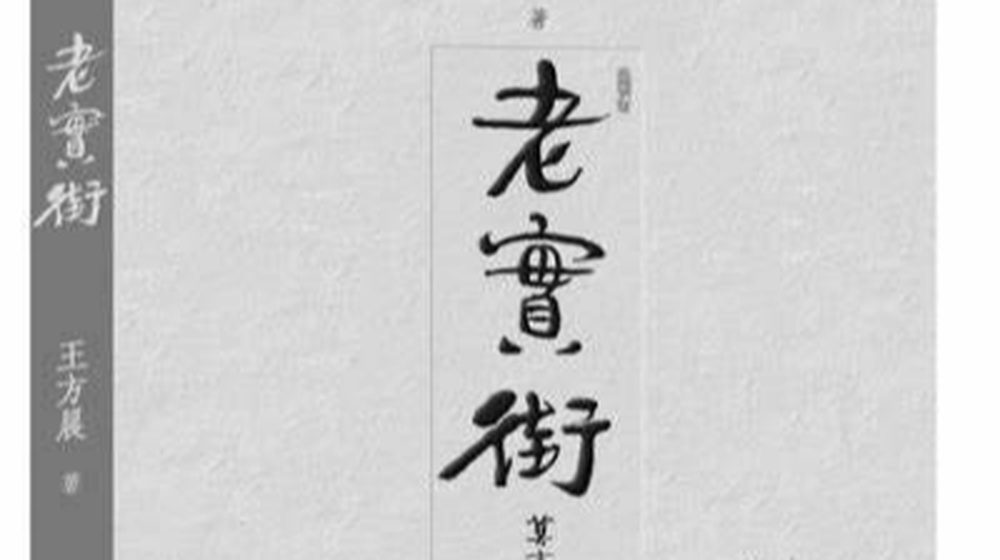 老實街
王方晨
著
著
老實街